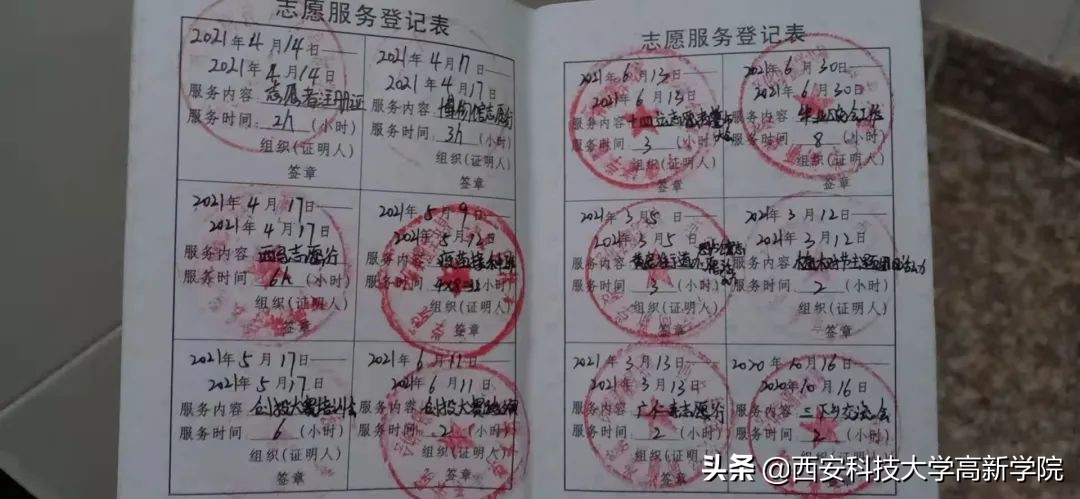 志愿服务登记表
2021年4月14日
2021年4月14日
服务内容 志愿者注册证
服务时间 2h (小时)
组织(证明人)
签章
2021年4月17日
2021年4月17日
服务内容 博物馆志愿
服务时间 3h (小时)
组织(证明人)
签章
2021年4月17日
2021年4月17日
服务内容 志愿
服务时间 6h (小时)
组织(证明人)
签章
2021年5月9日
2021年5月12日
服务内容 疫苗接种
服务时间 4×8=32
组织(证明人)
签章
2021年5月17日
2021年5月17日
服务内容 创投大赛培训会
服务时间 6 (小时)
组织(证明人)
签章
2021年6月11日
2021年6月11日
服务内容 创投大赛
服务时间 2 (小时)
组织(证明人)
签章
志愿服务登记表
2021年6月13日
2021年6月13日
服务内容 十四运志愿者
服务时间 3 (小时)
组织(证明人)
签章
2021年6月30日
2021年6月30日
服务内容 毕业晚会工作
服务时间 8 (小时)
组织(证明人)
签章
2021年3月5日
2021年3月5日
服务内容
服务时间 3 (小时)
组织(证明人)
签章
2021年3月12日
2021年3月12日
服务内容 植树节主题团日活动
服务时间 2 (小时)
组织(证明人)
签章
2021年3月13日
2021年3月13日
服务内容 广仁寺志愿
服务时间 2 (小时)
组织(证明人)
签章
2020年10月16日
2020年10月16日
服务内容 三下乡交流会
服务时间 2 (小时)
组织(证明人)
签章
头条 @西安科技大学高新学院